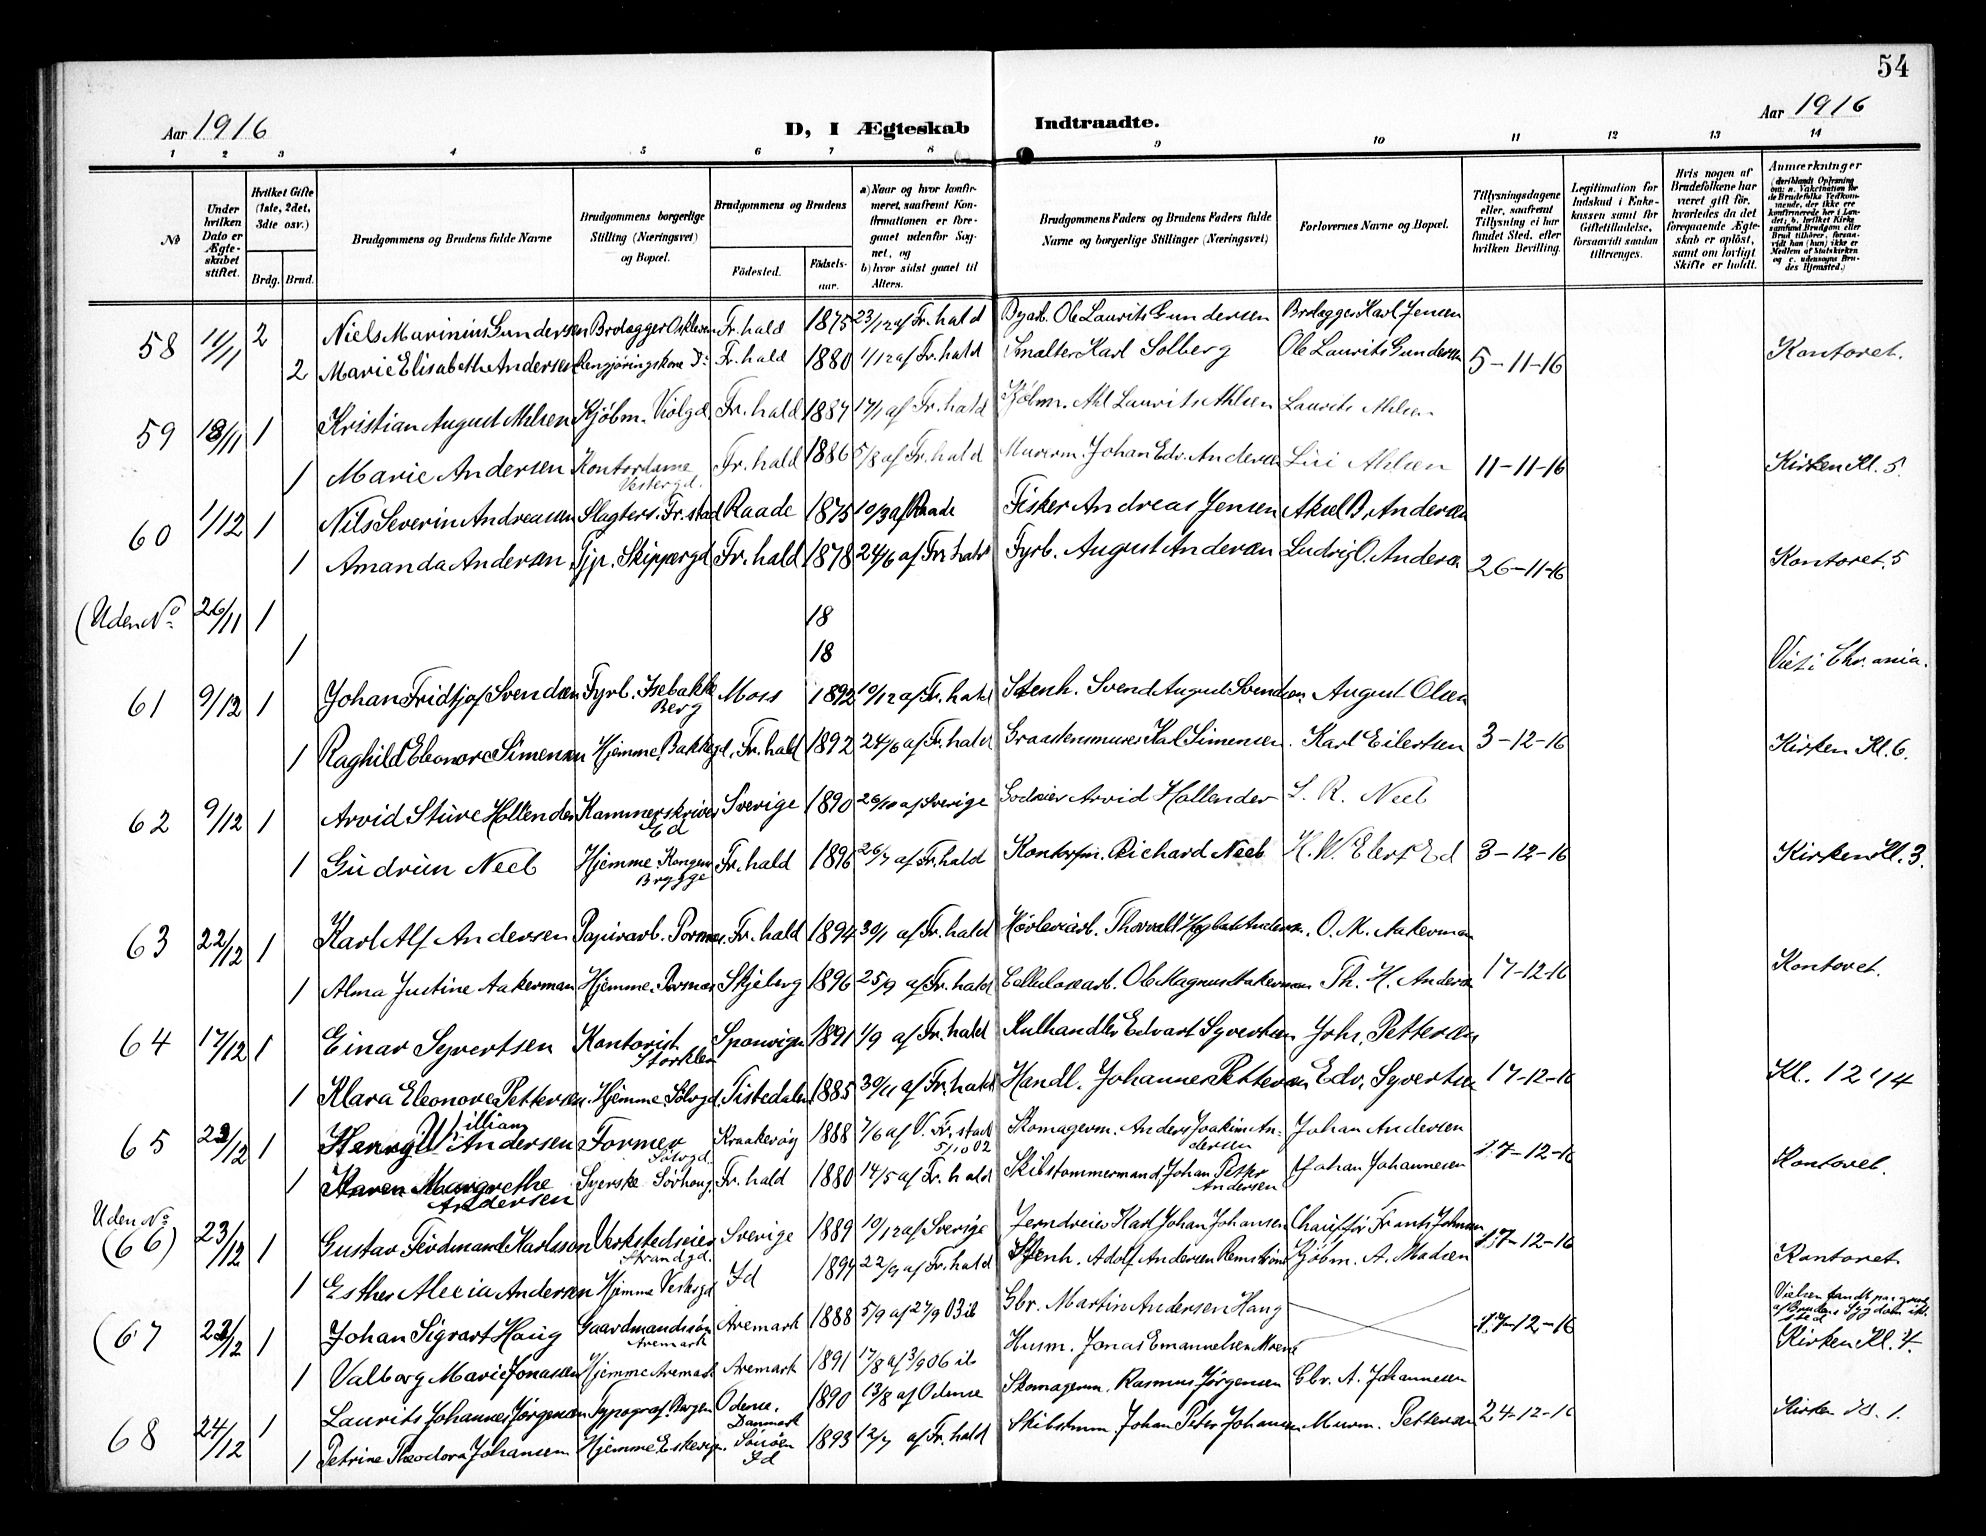 54
Aar 1916 D, I Ægteskab Indtraadte. Aar 1916
1 2 3 4 5 6 7 8 9 10 11 12 13 14
№
Under hvilken Dato er Ægteskabet stiftet.
Hvilket Gifte (1ste, 2det, 3die osv.)
Brdg. Brud.
Brudgommens og Brudens fulde Navne
Brudgommens borgerlige Stilling (Næringsvei) og Bopæl.
Brudgommens og Brudens
Födested. Födselsaar.
a) Naar og hvor konfirmeret, saafremt Konfirmationen er foregaaet udenfor Sognet, og
b) hvor sidst gaaet til Alters.
Brudgommens Faders og Brudens Faders fulde Navne og borgerlige Stillinger (Næringsvei)
Forlovernes Navne og Bopæl.
Tillysningsdagene eller, saafremt Tillysning ei har fundet Sted, efter hvilken Bevilling.
Legitimation for Indskud i Enkekassen samt for Giftetilladelse, forsaavidt saadan tiltrænges.
Hvis nogen af Brudefolkene har været gift för, hvorledes da det foregaaende Ægteskab er oplöst, samt om lovligt Skifte er holdt.
Anmærkninger
58 11/11 2 Niels Marinius Gundersen Brolægger Fr.hald 1875 23/12 af Fr.hald Byarb. Ole Laurits Gundersen Brolægger Karl Jensen
2 Marie Elisabeth Andersen Rengjøringskone Fr.hald 1880 1/12 af Fr.hald Smalter Karl Solberg Ole Laurits Gundersen 5-11-16 Kontoret.
59 18/11 1 Kristian August Ahlsen Kjöbm. Violgd. Fr.hald 1887 17/1 af Fr.hald Kjöbm. Laurits Ahlsen Laurits Ahlsen
1 Marie Andersen Kontordame Vestergd. Fr.hald 1886 5/8 af Fr.hald Murerm. Johan Edv. Andersen Ahlsen 11-11-16 Kirken Kl. 5
60 1/12 1 Nils Severin Andreasen Slagters. Fr.stad Raade 1875 10/3 af Raade Fisker Andreas Jensen Aksel B. Andersen
1 Amanda Andersen Tjp. Skippergd. Fr.hald 1878 24/6 af Fr.hald Fyrb. August Andersen Ludvig O. Andersen 26-11-16 Kontoret. 5
(Uden No 26/11 1 18
1 18 Viet i Chr.ania.
61 9/12 1 Johan Fridtjof Svendsen Fyrb. Isebakke Berg Moss 1892 10/12 af Fr.hald Stenh. Svend August Svendsen. August Olsen
1 Raghild Eleonore Simensen Hjemme, Bakkegd. Fr.hald 1892 24/6 af Fr.hald Graastensmurer Karl Simensen. Karl Eilertsen 3-12-16 Kirken Kl. 6.
62 9/12 1 Arvid Sture Hollender Kammerskriver Ed Sverige 1890 26/10 af Sverige Godseier Arvid Hollender L. R. Neeb
1 Gudrun Neeb Hjemme Kongens Brygge Fr.hald 1896 26/7 af Fr.hald Kontorfm. Richard Neeb H. W. Ebers Ed 3-12-16 Kirken Kl. 3.
63 22/12 1 Karl Alf Andersen Papirarb. Porsnes. Fr.hald 1894 30/1 af Fr.hald Høvleriarb. Thorvald Andersen. O. M. Aakerman
1 Alma Justine Aakerman Hjemme. Porsnes Skjeberg 1896 25/9 af Fr.hald Cellulosearb. Ole Magnus Aakerman Th. H. Andersen 17-12-16 Kontoret.
64 17/12 1 Einar Syvertsen Kontorist Sponvigen 1891 1/9 af Fr.hald Kulhandler Edvart Syvertsen Joh. Pettersen
1 Klara Eleonore Pettersen. Hjemme. Sölvgd. Tistedalen 1885 30/11 af Fr.hald Handl. Johannes Pettersen Edv. Syvertsen 17-12-16 Kl. 12 1/4
65 23/12 1 Henry William Andersen Former Sölvgd. Kraakeröy 1888 7/6 af V. Fr.stad 5/10 02 Skomagerm. Anders Joakim Andersen Johan Andersen 17-12-16
1 Karen Margrethe Andersen Syerske Sörhaug. Fr.hald 1880 14/5 af Fr.hald Skibstømmermand Johan Peter Andersen Johan Johannesen Kontoret.
Uden No (66) 23/12 1 Gustav Ferdinand Karlsson Verkstedseier Strandgd. Sverige 1889 10/12 af Sverige Jerndreier Karl Johan Johansen Chauffør Frants Johnsen 17-12-16
1 Esther Alexia Andersen Hjemme Vestergd Id 1894 22/9 af Fr.hald Stenh. Adolf Andersen Remström Kjöbm. A. Madsen Kontoret
(67 23/12 1 Johan Sigvart Haug Gaardmandssön Aremark Aremark 1888 5/9 af 27/9 03 ib Gbr. Martin Andersen Haug 17-12-16 Vielsen fandt paa grund af Brudens Sygdom ikke sted
1 Valborg Marie Jonassen Hjemme Aremark Aremark 1891 17/8 af 3/9 06 ib Husm. Jonas Emanuelsen Kirken Kl. 4.
68 24/12 1 Laurits Johannes Jørgensen Typograf. Bergen Odense. Danmark 1890 13/8 af Odense Skomagerm. Rasmus Jørgensen Gbr. A. Johannesen 24-12-16 Kirken Kl. 1.
1 Petrine Theodora Johansen Hjemme Eskevigen. Id 1893 12/7 af Fr.hald Skibstmm. Johan Peter Johansen Murm. Pettersen